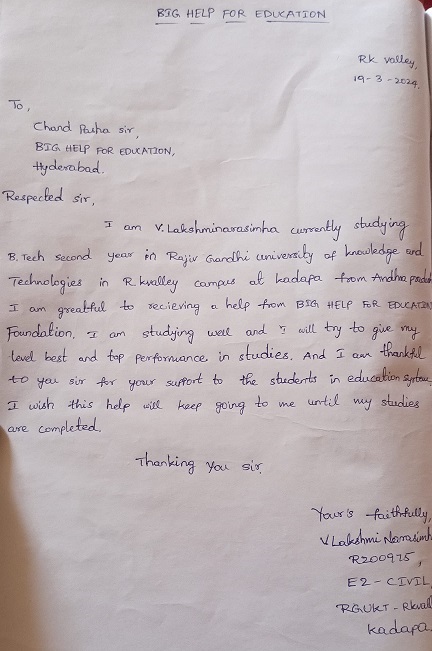 BIG HELP FOR EDUCATION
RK valley,
19-3-2024.
To,
Chand Pasha sir,
BIG HELP FOR EDUCATION,
Hyderabad.
Respected sir,
I am V. Lakshminarasimha currently studying
B. Tech second year in Rajiv Gandhi university of knowledge and
Technologies in R kvalley campus at kadapa from Andhra
I am greatful to recieving a help from BIG HELP FOR EDUCATION
Foundation. I am studying well and I will try to give my
level best and top performance in studies. And I am thankful
to you sir for your support to the students in education system.
I wish this help will keep going to me until my studies
are completed.
Thanking you sir.
Your's faithfully,
V Lakshmi Narasimh
R200975,
E2 - CIVIL,
RGUKT - Rkvall
kadapa.